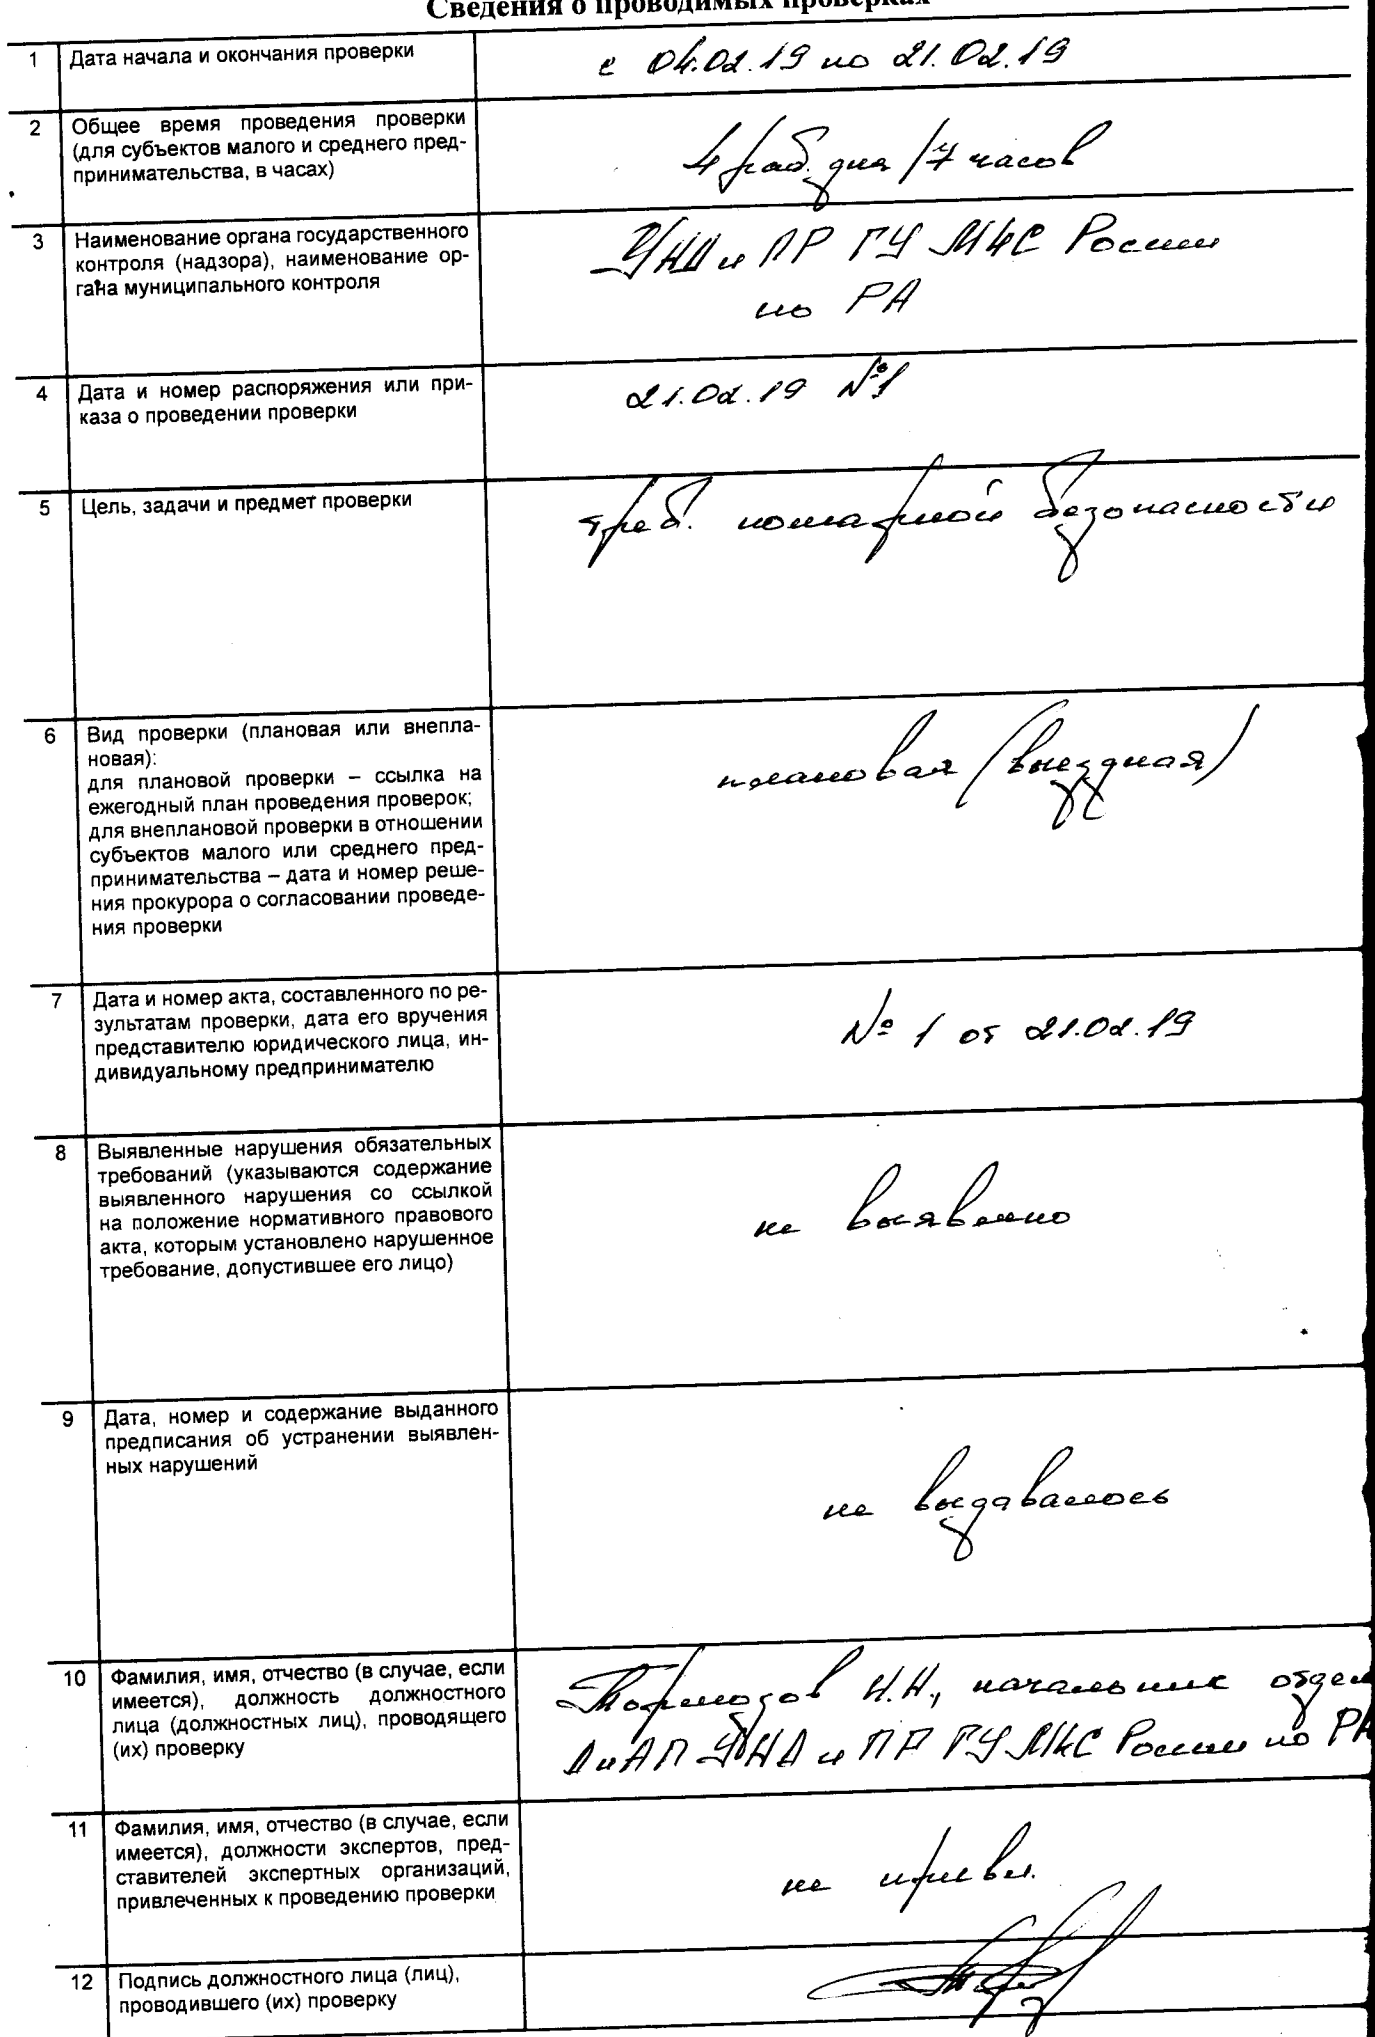 Сведения о проводимых проверках
1
Дата начала и окончания проверки
с 04.02.19 по 21.02.19
2
Общее время проведения проверки
(для субъектов малого и среднего пред-
принимательства, в часах)
4 раб. дня / 7 часов
3
Наименование органа государственного
контроля (надзора), наименование ор-
гана муниципального контроля
УНД и ПР ГУ МЧС России
по РА
4
Дата и номер распоряжения или при-
каза о проведении проверки
21.02.19 №1
5
Цель, задачи и предмет проверки
треб. пожарной безопасности
6
Вид проверки (плановая или внепла-
новая):
для плановой проверки – ссылка на
ежегодный план проведения проверок;
для внеплановой проверки в отношении
субъектов малого или среднего пред-
принимательства – дата и номер реше-
ния прокурора о согласовании проведе-
ния проверки
плановая (выездная)
7
Дата и номер акта, составленного по ре-
зультатам проверки, дата его вручения
представителю юридического лица, ин-
дивидуальному предпринимателю
№ 1 от 21.02.19
8
Выявленные нарушения обязательных
требований (указываются содержание
выявленного нарушения со ссылкой
на положение нормативного правового
акта, которым установлено нарушенное
требование, допустившее его лицо)
не выявлено
9
Дата, номер и содержание выданного
предписания об устранении выявлен-
ных нарушений
не выдавалось
10
Фамилия, имя, отчество (в случае, если
имеется), должность должностного
лица (должностных лиц), проводящего
(их) проверку
Н.Н., начальник отдел
ДиАП УНД и ПР ГУ МЧС России по РА
11
Фамилия, имя, отчество (в случае, если
имеется), должности экспертов, пред-
ставителей экспертных организаций,
привлеченных к проведению проверки
не привл.
12
Подпись должностного лица (лиц),
проводившего (их) проверку